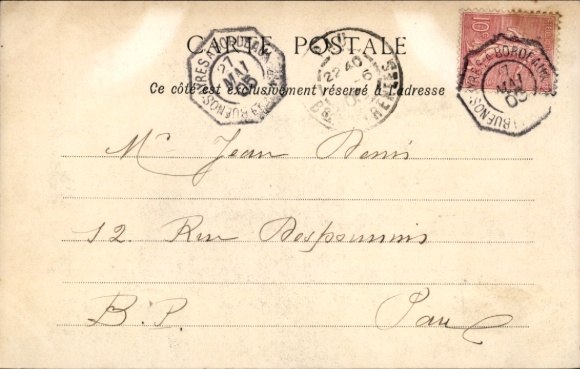 CARTE POSTALE
Ce côté est exclusivement réservé à l'adresse
BUENOS-AYRES A BORDEAUX
27
MAI
05
22 40
BUENOS-AYRES A BORDEAUX
MAI
05
10
Mr Jean Denis
12. Rue
B. P. Pau